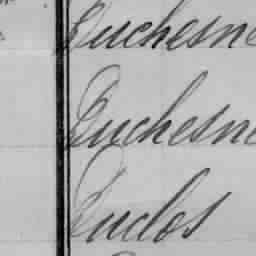 Duchesne
Duchesne
Duclos